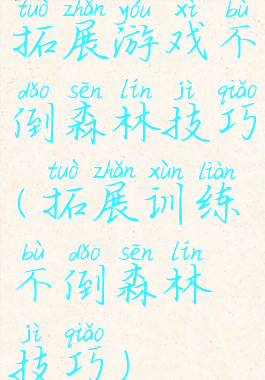 tuò zhǎn yóu xì bù
拓展游戏不
dǎo sēn lín jì qiǎo
倒森林技巧
tuò zhǎn xùn liàn
(拓展训练
bù dǎo sēn lín
不倒森林
jì qiǎo
技巧)